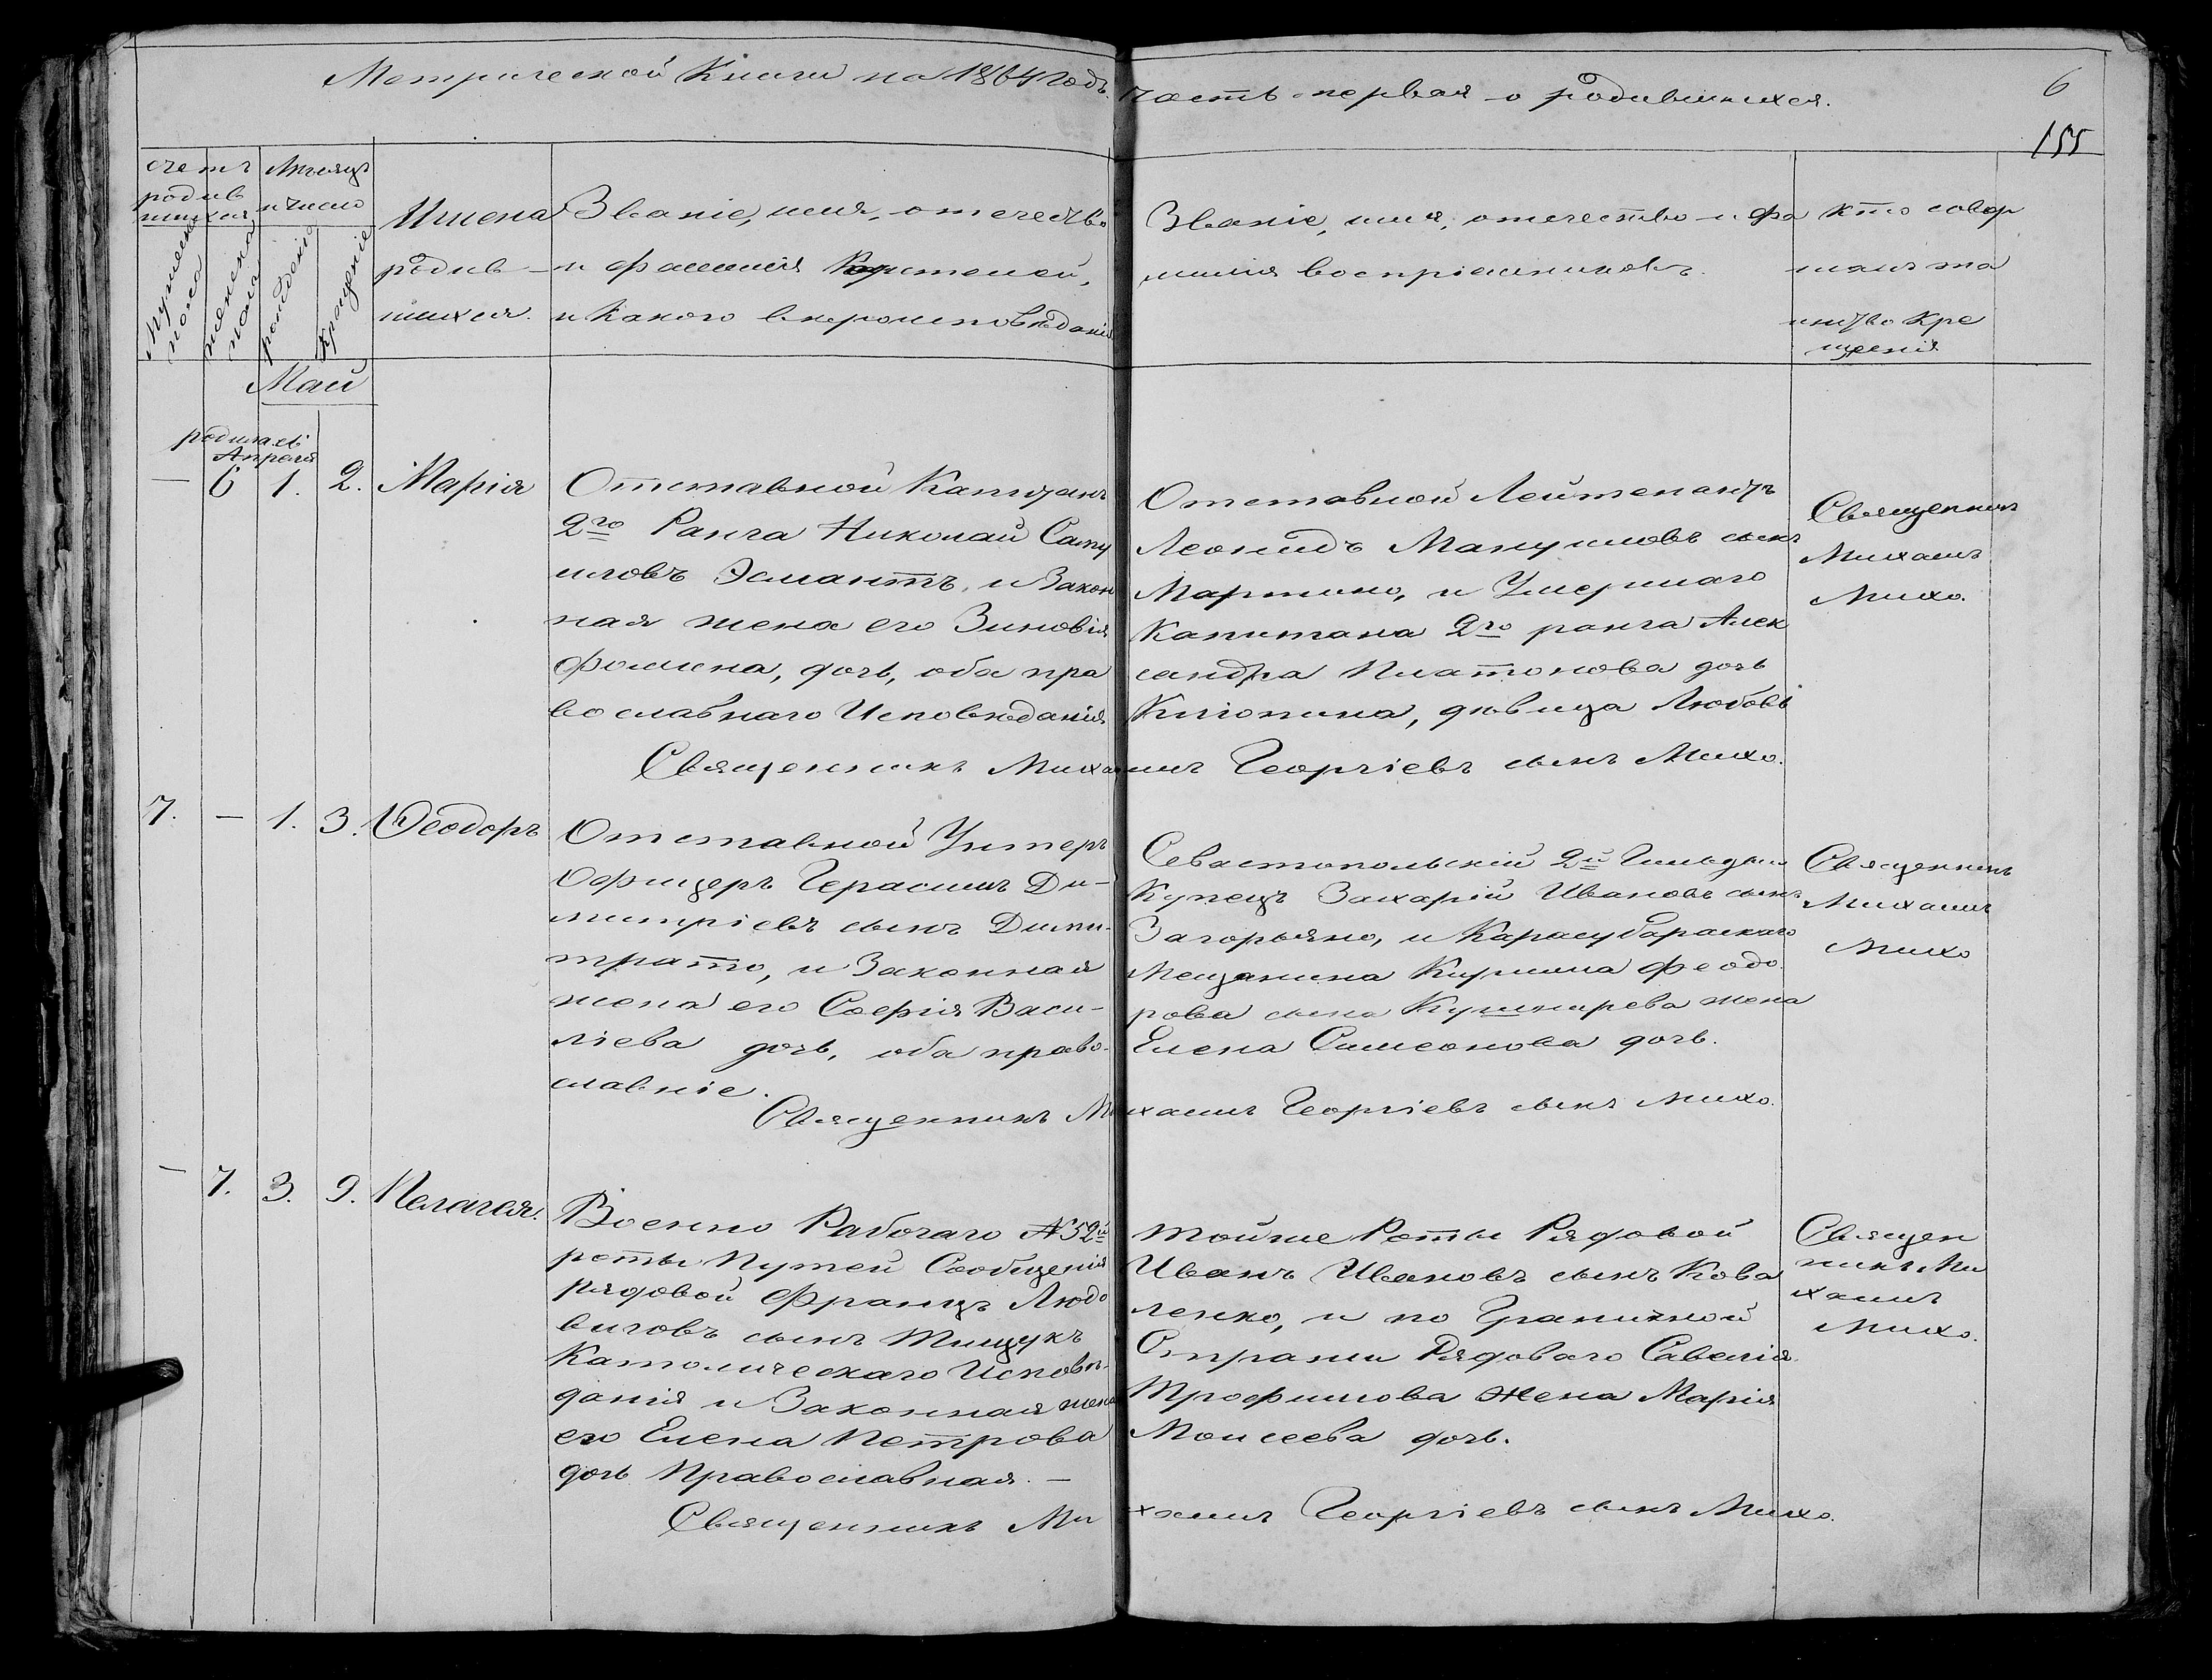 Метрической Книги на 1864 годъ. часть первая о родившихся.
6
155
счетъ родив шихся
Мужеска пола
женска пола
Месяцъ и число
рожденiя
крещенiе
Имена
родив-
шихся.
Званіе, имя, отечество
и фамилія Родителей,
и какого вероисповѣданія
Званіе, имя, отечество и фа
милія воспріемниковъ.
кто совер
шалъ та
инство Кре
щенія
Май
родилась
Апреля
— 6 1. 2. Марія
Отставной Капитанъ
2го Ранга Николай Саму
иловъ Эсмантъ, и Закон
ная жена его Зиновія
Фомина, дочь, оба пра
вославнаго Исповѣданія
Отставной Лейтенантъ
Леонидъ Мануиловъ сынъ
Мартино, и Умершаго
Капитана 2го ранга Алек
сандра Платонова дочь
Кигопина, дѣвица Любовь
Священникъ
Михаилъ
Михо.
Священникъ Михаилъ Георгіевъ сынъ Михо.
7. — 1. 3. Ѳеодоръ
Отставной Унтеръ
Офицеръ Герасимъ Ди-
митріевъ сынъ Дими-
трато, и Законная
жена его Софія Васи-
ліева дочь, оба право-
славніе.
Севастопольскій 2й Гильдіи
Купецъ Захарій Ивановъ сынъ
Загорьяно, и Карасубарскаго
Мещанина Кирила Феодо
рова сына Кушнирева жена
Елена Симеонова дочь.
Священникъ
Михаилъ
Михо
Священникъ Михаилъ Георгіевъ сынъ Михо.
— 7. 3. 9. Пелагея.
Военно Рабочаго №52й
роты Путей Сообщенія
рядовой Францъ Людо
виговъ сынъ Тищукъ
Католическаго Исповѣ-
данія и Законная жена
его Елена Петрова
дочь Православная. —
Тойже Роты Рядовой
Иванъ Ивановъ сынъ Кова
ленко, и по Граничной
Стражи Рядоваго Савелія
Трофимова жена Марія
Моисеева дочь.
Священ
никъ Ми
хаилъ
Михо.
Священникъ Михаилъ Георгіевъ сынъ Михо.